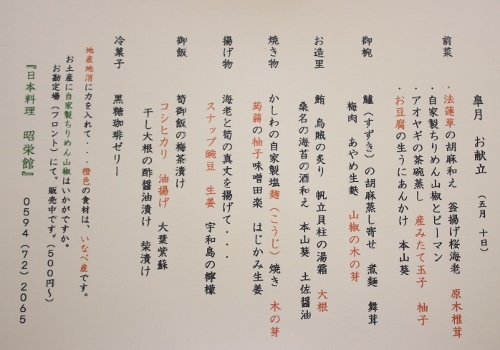 皐月 お献立 (五月 十日)
前菜
・法蓮草の胡麻和え 釜揚げ桜海老 原木椎茸
・自家製ちりめん山椒とピーマン
・アオヤギの茶碗蒸し 産みたて玉子 柚子
・お豆腐の生うにあんかけ 本山葵
御椀 鱸(すずき)の胡麻蒸し寄せ 煮麺 舞茸
梅肉 あやめ生麩 山椒の木の芽
お造里 鮪 烏賊の炙り 帆立貝柱の湯霜 大根
桑名の海苔の酒和え 本山葵 土佐醤油
焼き物 かしわの自家製塩麹(こうじ)焼き 木の芽
蒟蒻の柚子味噌田楽 はじかみ生姜
揚げ物 海老と筍の真丈を揚げて・・・
スナップ豌豆 生姜 宇和島の檸檬
御飯 筍御飯の梅茶漬け
コシヒカリ 油揚げ 大葉紫蘇
干し大根の酢醤油漬け 柴漬け
冷菓子 黒糖珈琲ゼリー
地産地消に力を入れて・・・橙色の食材は、いなべ産です。
お土産に自家製ちりめん山椒はいかがですか。
お勘定場(フロント)にて。販売中です。(500円~)
『日本料理 昭栄館』 0594(72)2065